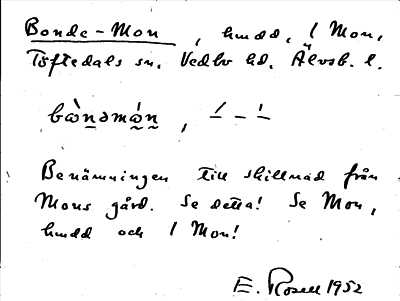 Bonde-Mon, hmdd, 1 Mon,
Töftedals sn, Vedbo hd. Älvsb. l.
Benämningen till skillnad från
Mons gård. Se detta! Se Mon,
hmdd och 1 Mon!
E. Rosell 1952